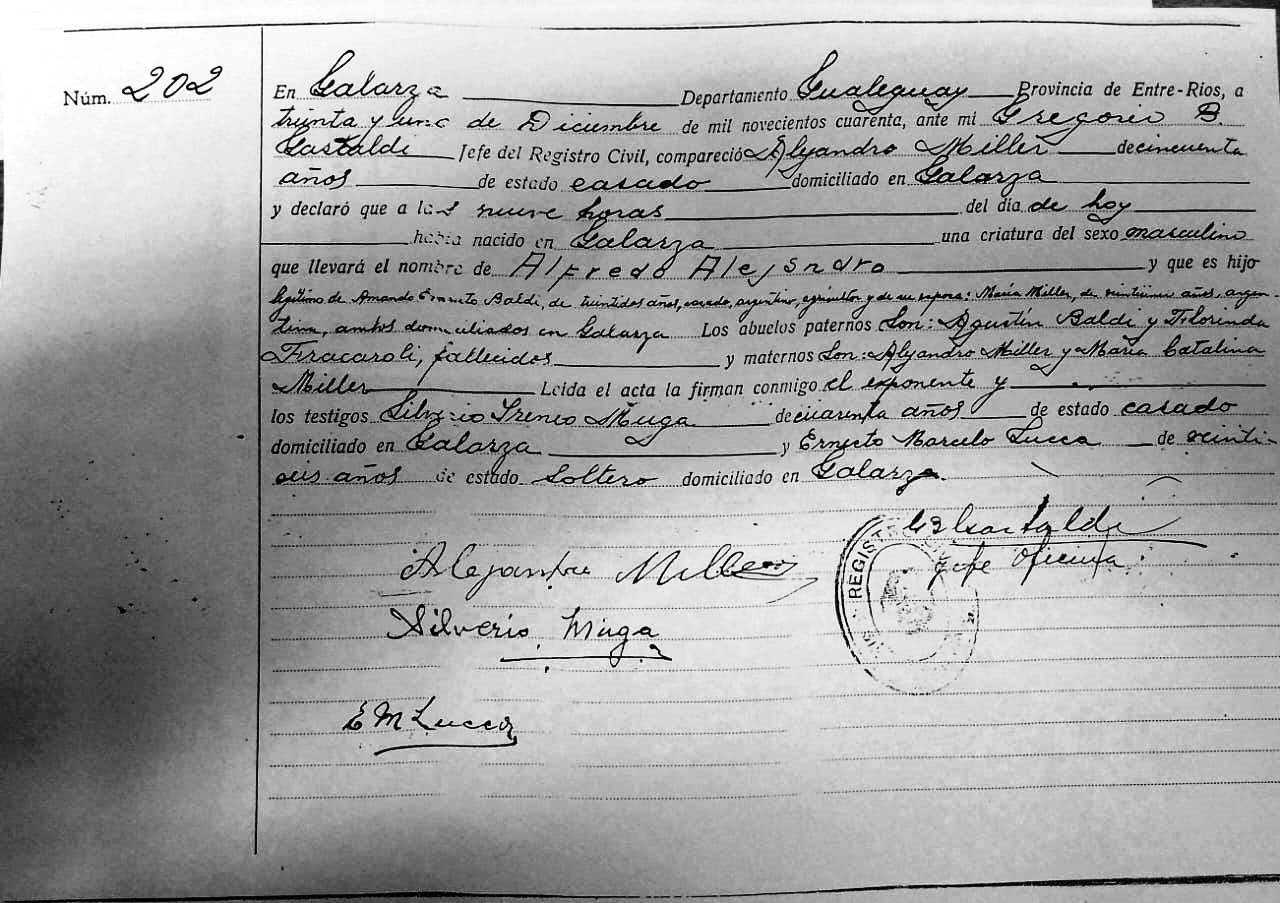 Núm. 202
En Galarza Departamento Gualeguay Provincia de Entre-Rios, a
treinta y uno de Diciembre de mil novecientos cuarenta, ante mi Gregorio B.
Gastaldi Jefe del Registro Civil, compareció Alejandro Miller de cincuenta
años de estado casado domiciliado en Galarza
y declaró que a las nueve horas del día de hoy
había nacido en Galarza una criatura del sexo masculino
que llevará el nombre de Alfredo Alejandro y que es hijo
legítimo de Amando Ernesto Baldi, de treintidos años, casado, argentino, agricultor y de su esposa: María Miller, de veintinueve años, argen-
tina, ambos domiciliados en Galarza Los abuelos paternos son: Agustín Baldi y Florinda
Firacaroli, fallecidos y maternos son: Alejandro Miller y María Catalina
Miller Leida el acta la firman conmigo el exponente y
los testigos Silverio Ireneo Muga de cuarenta años de estado casado
domiciliado en Galarza y Ernesto Marcelo Lucca de veinti-
seis años de estado soltero domiciliado en Galarza.
Gastaldi
Alejandro Miller
Jefe Oficina
REGISTRO
Silverio Muga
E M Lucca